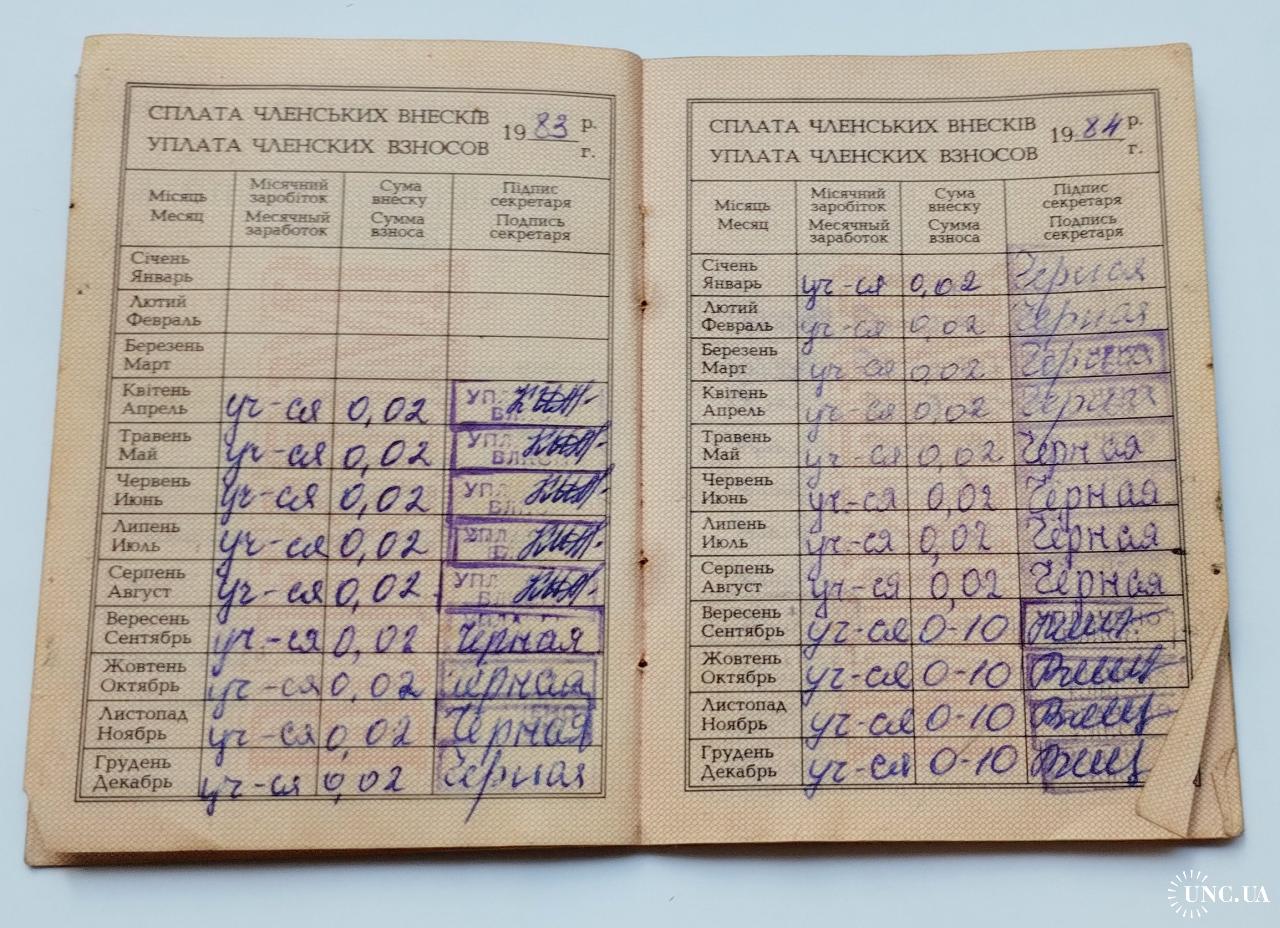 СПЛАТА ЧЛЕНСЬКИХ ВНЕСКІВ
УПЛАТА ЧЛЕНСКИХ ВЗНОСОВ
1983 р.
г.
Місяць
Месяц
Місячний
заробіток
Месячный
заработок
Сума
внеску
Сумма
взноса
Підпис
секретаря
Подпись
секретаря
Січень
Январь
Лютий
Февраль
Березень
Март
Квітень
Апрель уч-ся 0,02 УПЛ
ВЛ
Травень
Май уч-ся 0,02 УПЛ
ВЛКС
Червень
Июнь уч-ся 0,02 УП
ВЛ
Липень
Июль уч-ся 0,02 УПЛ
Серпень
Август уч-ся 0,02 УПЛ
ВЛ
Вересень
Сентябрь уч-ся 0,02 Черная
Жовтень
Октябрь уч-ся 0,02 Черная
Листопад
Ноябрь уч-ся 0,02 Черная
Грудень
Декабрь уч-ся 0,02 Черная
СПЛАТА ЧЛЕНСЬКИХ ВНЕСКІВ
УПЛАТА ЧЛЕНСКИХ ВЗНОСОВ
1984 р.
г.
Місяць
Месяц
Місячний
заробіток
Месячный
заработок
Сума
внеску
Сумма
взноса
Підпис
секретаря
Подпись
секретаря
Січень
Январь уч-ся 0,02 Черная
Лютий
Февраль уч-ся 0,02 Черная
Березень
Март уч-ся 0,02 Черная
Квітень
Апрель уч-ся 0,02 Черная
Травень
Май уч-ся 0,02 Черная
Червень
Июнь уч-ся 0,02 Черная
Липень
Июль уч-ся 0,02 Черная
Серпень
Август уч-ся 0,02 Черная
Вересень
Сентябрь уч-ся 0-10
Жовтень
Октябрь уч-ся 0-10
Листопад
Ноябрь уч-ся 0-10
Грудень
Декабрь уч-ся 0-10
UNC.UA